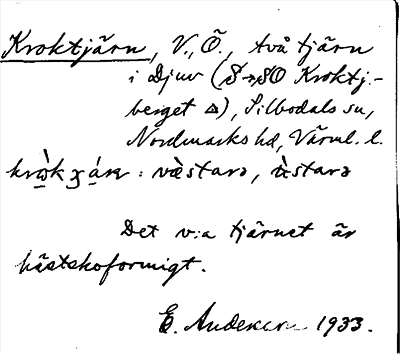 Kroktjärn, V., Ö., två tjärn
i Djuv (S→SO Kroktj.-
berget △), Silbodals sn,
Nordmarks hd, Värml. l.
: västarə, östarə
Det v:a tjärnet är
hästskoformigt.
E. 1933.